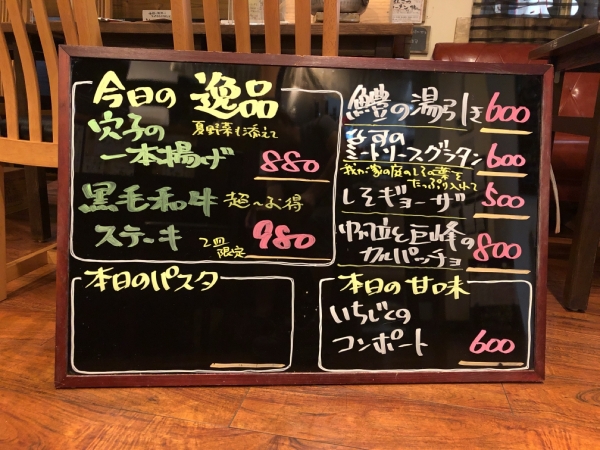 今日の 逸品
穴子の
夏野菜も添えて
一本揚げ 880
黒毛和牛 超〜お得
ステーキ 2皿限定 980
鱧の湯引き 600
茄子の
ミートソースグラタン 600
我が家の庭のしその葉を
たっぷり入れて
しそギョーザ 500
帆立と巨峰の
カルパッチョ 800
本日のパスタ
本日の甘味
いちじくの
コンポート 600